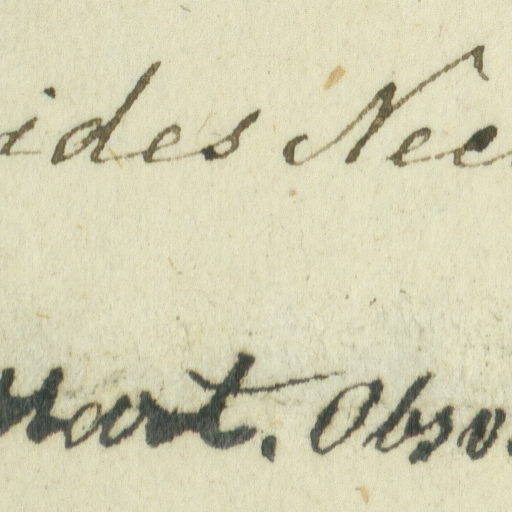 ides Nee
Mart. Obs